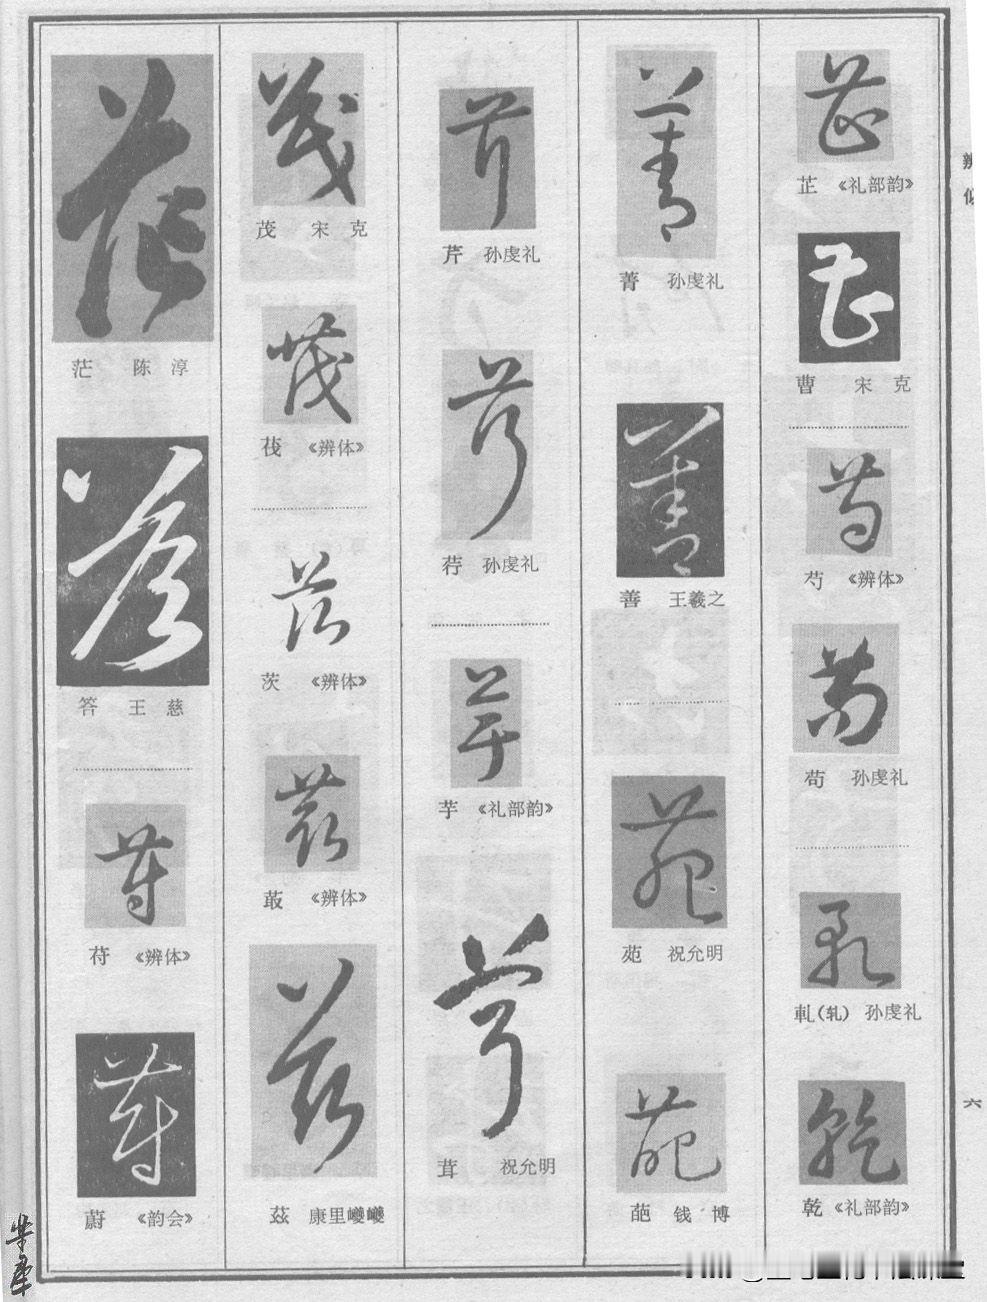 辨
芷 《礼部韵》
曹 宋 克
芍 《辨体》
苟 孙虔礼
軋(轧) 孙虔礼
乾 《礼部韵》
菁 孙虔礼
善 王羲之
苑 祝允明
葩 钱 博
芹 孙虔礼
荇 孙虔礼
芋 《礼部韵》
茸 祝允明
茂 宋 克
茷 《辨体》
茨 《辨体》
菆 《辨体》
茲 康里巎巎
茫 陈 淳
答 王 慈
苻 《辨体》
蔚 《韵会》
六